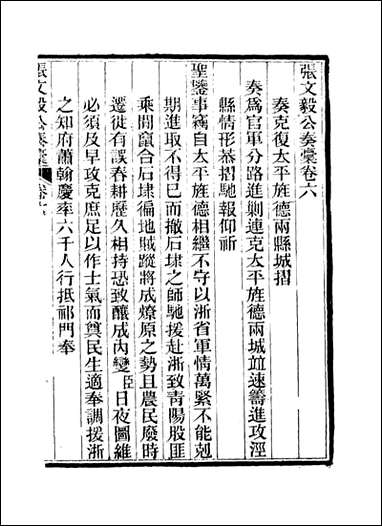 張文毅公奏稾卷六
奏克復太平旌德兩縣城摺
奏爲官軍分路進剿連克太平旌德兩城竝速籌進攻涇
縣情形恭摺馳報仰祈
聖鑒事竊自太平旌德相繼不守以浙省軍情萬緊不能剋
期進取不得已而撤石埭之師馳援赴浙致青陽股匪
乘閒竄合石埭徧地賊蹤將成燎原之勢且農民廢時
遷徙有誤春耕歷久相持恐致釀成內變臣日夜圖維
必須及早攻克庶足以作士氣而奠民生適奉調援浙
之知府蕭翰慶率六千人行抵祁門奉
張文毅公奏稾 卷六